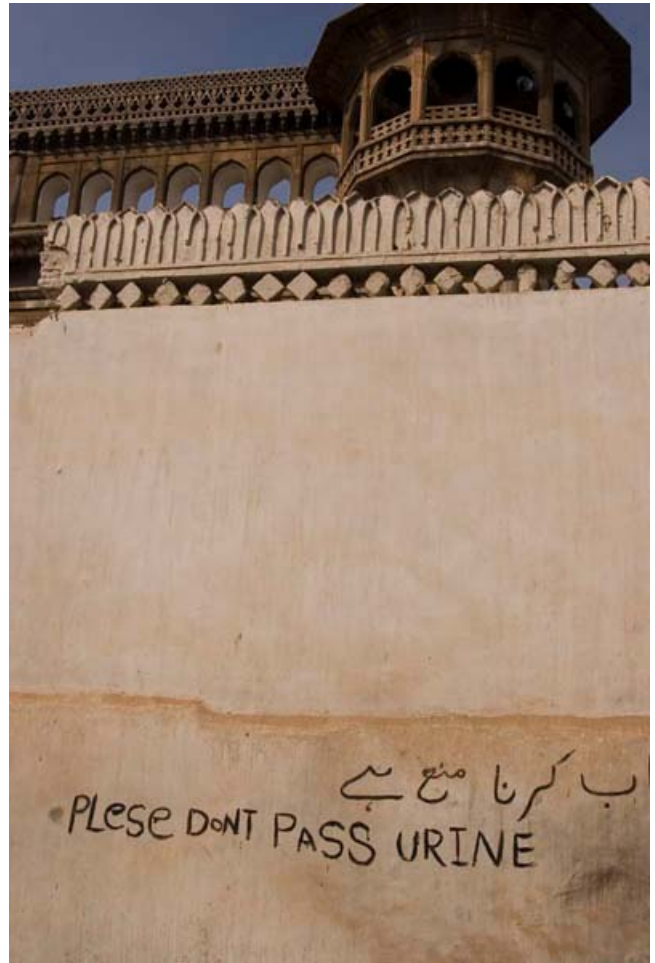 کرنا منع ہے
PLESE DONT PASS URINE